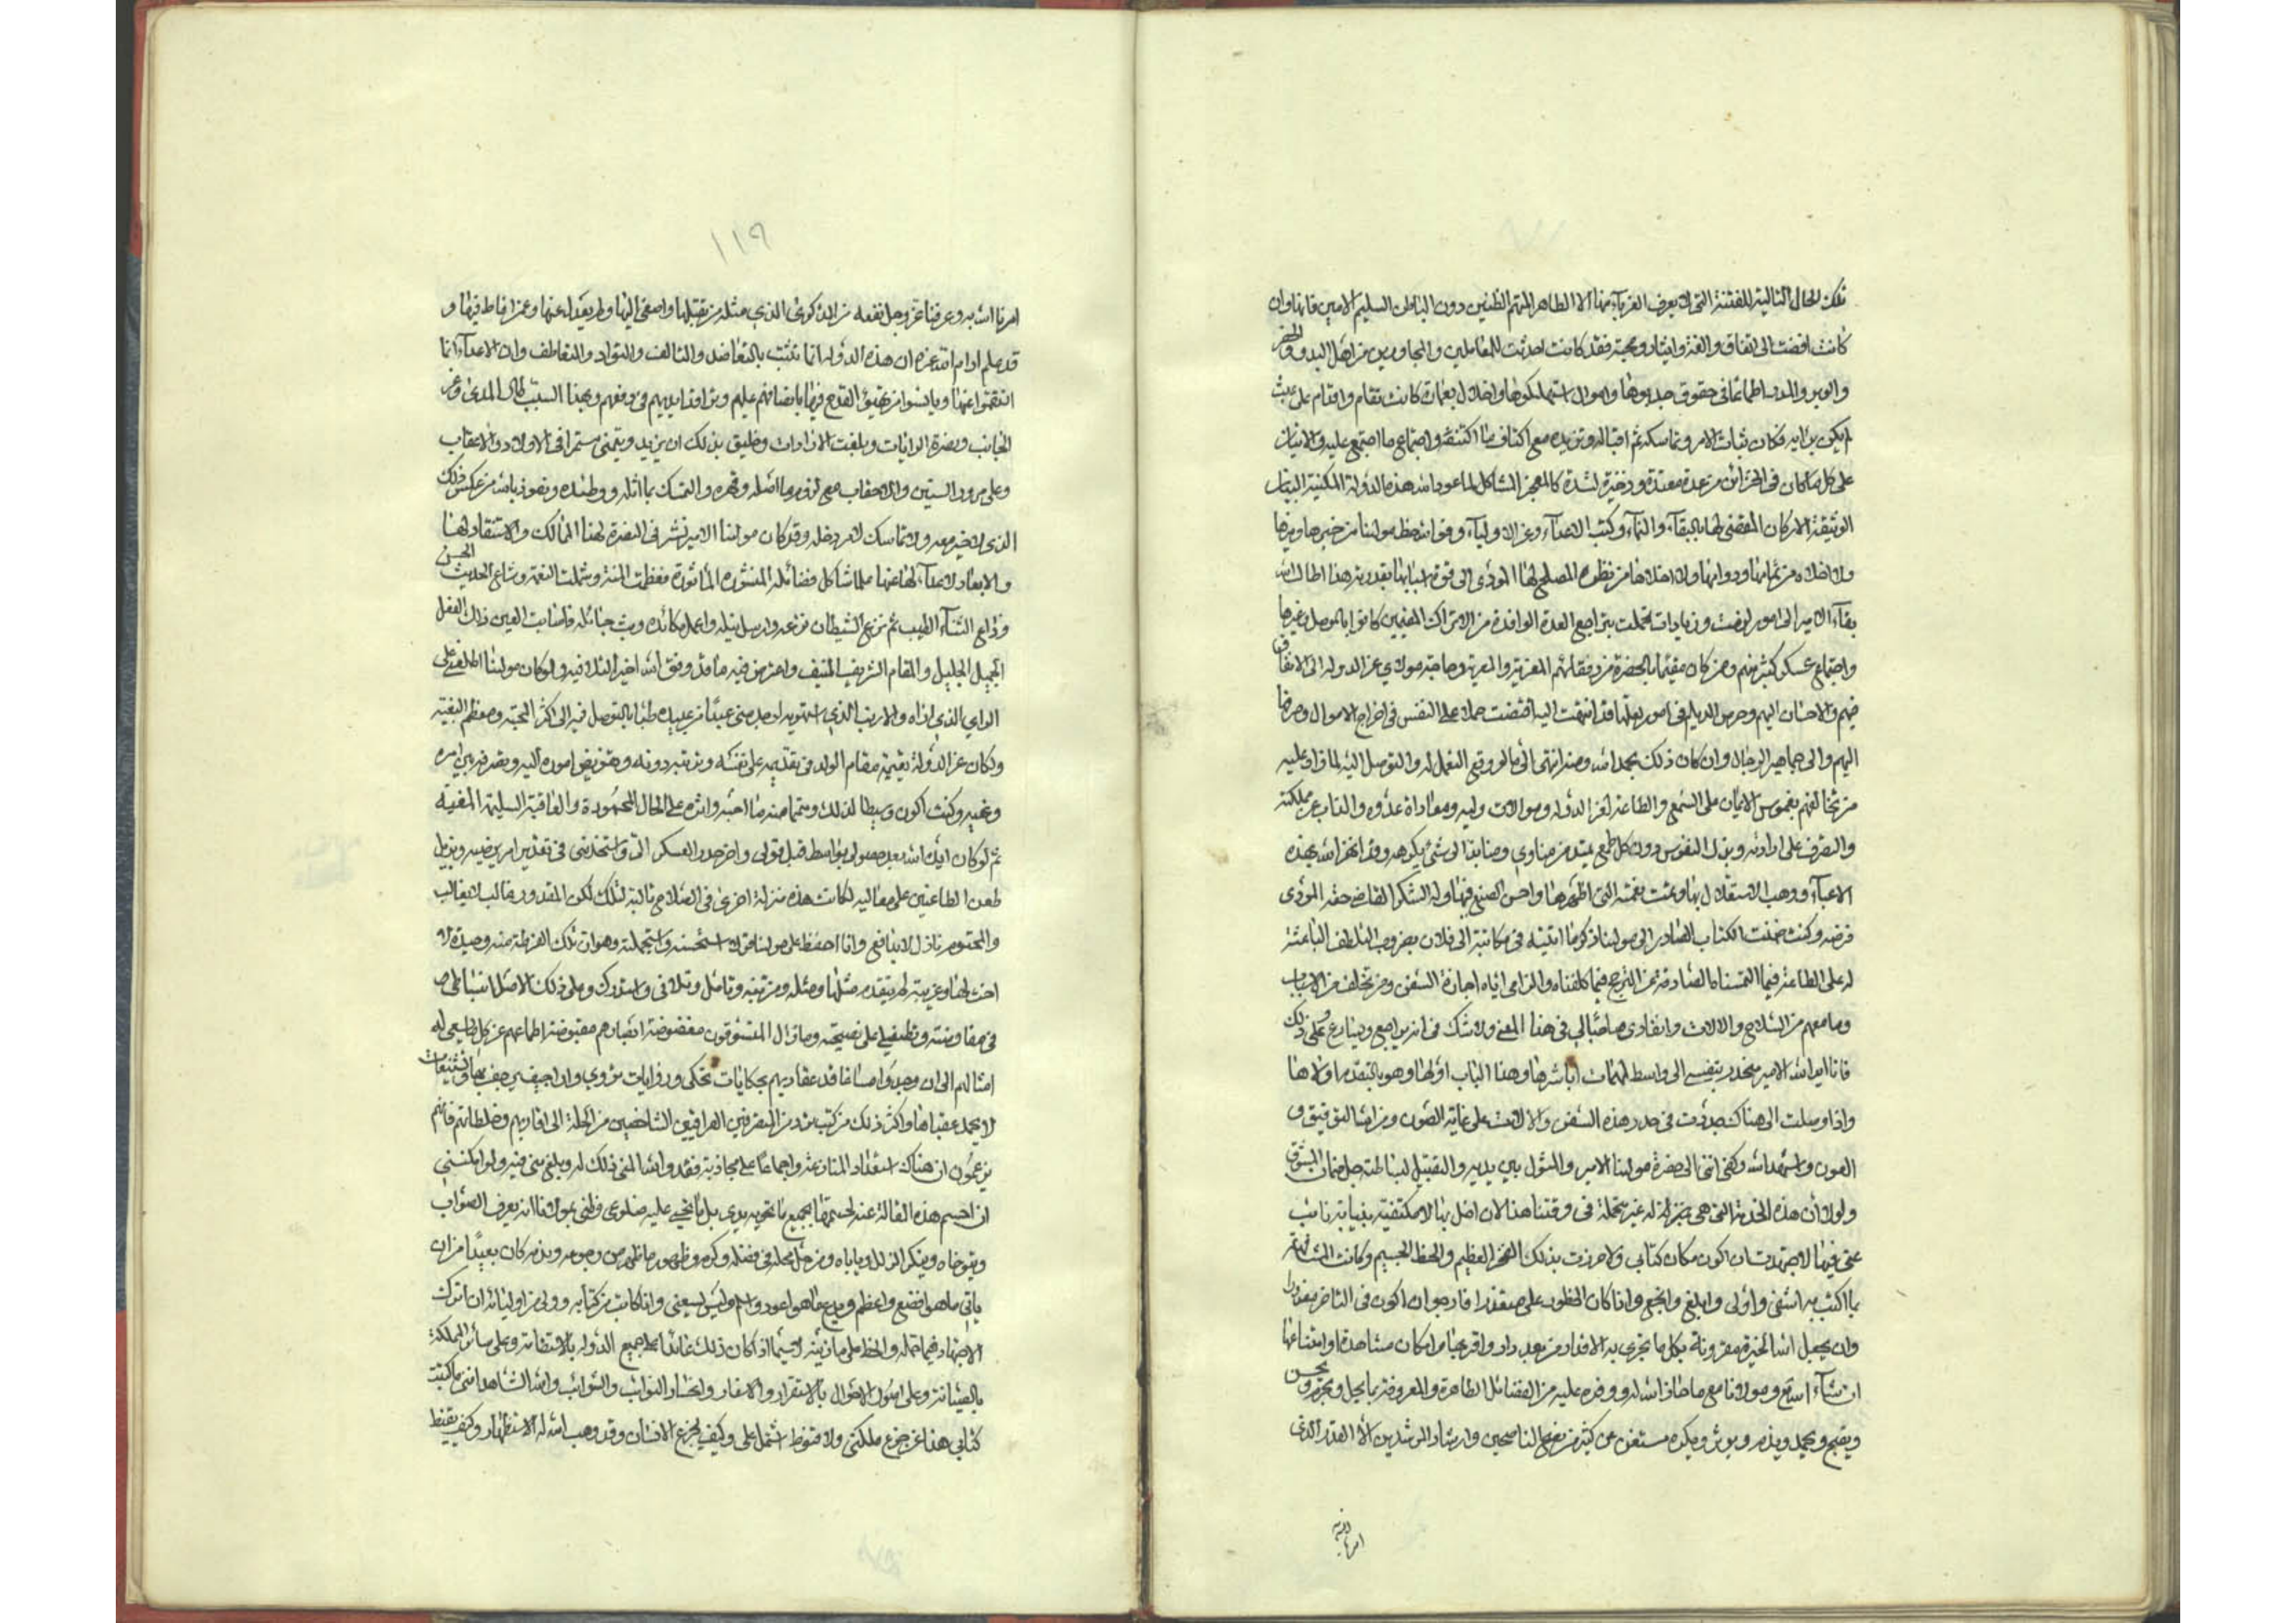 تلك الحال التالية للفتنة التي لا يعرف الغرباء منها الا الظاهر المتهم الظنين دون الباطن السليم الامين فانها وان
كانت افضت الى اتفاق والفة وايثار ومحبة فقد كانت احدثت للمعاملين والمجاورين من اهل البدو والحضر
والوبر والمدر اطماعا في حقوق جذبوها واموال استهلكوها واختلال بعمارة كانت تقام واقدام على عبث
لم يكن يراد فكان ثبات الامر وتماسكه ثم اقباله وتزيده مع اكتناف ما اكتنفه واجتماع ما اجتمع عليه والاتيان
على كل ما كان في الخزائن من عدة معتدة وذخيرة لشدة كالمعجز المشاكل لما عود الله هذه الدولة المكينة البنيان
الوثيقة الاركان المقضي لها بالبقاء والنماء وكبت الاعداء وعز الاولياء وفق الله حظ مولينا من خيرها وميرها
ولا اخلاه من تمامها ودوامها ولا اخلاها من نظره المصلح لها المؤدي الى قوة اسبابها بقدرته هذا اطال الله
بقاء الامير الى امور نجمت وزيادات تحملت بتراجع العدة الوافدة من الاتراك المقيمين كانوا بالموصل وغيرها
واجتماع عسكر كثير منهم ومن كان مقيما بالحضرة من رفقائهم المعزية والمعزية وحاجة مولاي عز الدولة الى الانفاق
فيهم والاحسان اليهم وحرس الديلم في امور بعلمها قد انتهت اليه اقتضت حملا على النفس في اخراج الاموال وصرفها
اليهم والى جماهير الرجال وان كان ذلك بحمد الله ومنه انتهى الى ما لو وقع التعمل له والتوصل اليه لما زاد عليه
من تحالفهم بغموس الايمان على السمع والطاعة لعز الدولة وموالاة وليه ومعاداة عدوه والذب عن مملكته
والتصرف على ارادته وبذل النفوس دون كل طمع يمتد من مناوي ومنابذ الى شيء يكرهه وقد انهض الله بهذه
الاعباء ووهب الاستقلال بها وتمت نعمته التي اظهرها واحسن الصنع فيها وله الشكر القاضي حقه المؤدي
فرضه وكنت ضمنت الكتاب الصادر الى مولينا ذكر ما اتيته في مكاتبة الى فلان بضروب التلطف الباعثة
له على الطاعة فيما التمسناه الصادفة عن التحرج فيما كلفناه والزامي اياه اجازة السفن ومن تخلف من الارباب
وما معهم من السلاح والالات وانفاذي صاحبا لي في هذا المعنى ولا شك في انه يراجع ويسارع وعلى ذلك
فانا ايد الله الامير منحدر بنفسي الى واسط لمهمات اباشرها وهذا الباب اولها وهو بالتقدم اولاها
واذا وصلت الى هناك جددت في حدر هذه السفن والالات على غاية الصون ومن الله التوفيق و
العون واستمداده وكفى اني الى حضرة مولينا الامير والمثول بين يديه والتقبيل لبساطه جل ضمان المشوق
ولولا ان هذه الخدمة التي هي بمنزلة له غير محتملة في وقتنا هذا لان اخل بها لا مكتفية بنيابة نائب
عني فيها لاجتهدت ان اكون مكان كتابي ولاحرزت بذلك الفخر العظيم والحظ الجسيم وكانت المشافهة
بما اكتب به اشفى واولى وابلغ وانجع واذا كان المظنون على متعذرا فارجو ان اكون في التاخر معذورا
وان يجعل الله الخيرة مقرونة بكل ما تجري به الاقدار من بعد دار واقترابها وامكان مشاهدة وامتناعها
ان شاء الله ومولانا مع ما حازه الله له ووفره عليه من الفضائل الظاهرة والمعروفة بما يحل ويحرم ويحسن
ويقبح ويحمد ويذم ويؤثر ويكره مستغن عن كثير من نصح الناصحين وارشاد المرشدين الا القدر الذي
امرنا الله به
١١٩
امرنا الله به وعرفنا عز وجل نفعه من الذكرى الذي مثله من تقبلها واصغى اليها ولم يعدل عنها وعمن افاض فيها و
قد علم ادام الله عزه ان هذه الدولة انما تثبت بالتعاضد والتالف والتواد والتعاطف وان الاعداء انما
انقمعوا عنها ويايسوا من تهيئ القدح فيها بايتلافهم عليهم وترافد ايديهم في دفعهم وبهذا السبب طال المدى وعز
الجانب ونصرة الرايات وبلغت الارادات وخليق بذلك ان يزيد وينمى مستمرا في الاولاد والاعقاب
وعلى مرور السنين والاحقاب مع لزوم ما اصله وقرره والتمسك بما اثله ووطده ونعوذ بالله من عكس ذلك
الذي لا خير معه ولا تماسك لامر دخله وقد كان مولينا الامير نشر في النصرة لهذا الممالك والاستنقاذ لها
والابعاد لاعداء لها عنها علما شاكل فضائله المنشورة الماثورة فعظمت المنة وشملت النعمة وشاع الحديث الحسن
وذاع الثناء الطيب ثم نزغ الشيطان نزغه وارسل نبله واعمل مكائده وبث حبائله فاصابت العين ذلك الفعل
الجميل الجليل والمقام الشريف المنيف واعترض فيه ما قد وفق الله اخيرا لتلافيه ولو كان مولينا اطلعني على
الراي الذي اراه والارب الذي استهويه اوجد مني عبدا من عبيده طبا بالتوصل فيه الى اكثر المحبة ومعظم البغية
ولكان عز الدولة يقيمه مقام الوالد في تقديمه على نفسه وترتبه دونه وتفويض اموره اليه وتصرفه بين امره
ونهيه وكنت اكون وسيطا لذلك ومتمما منه ما احبه واثره على الحال المحمودة والعاقبة السليمة المغبة
ثم لو كان ايده الله بعد حصولي بواسط قبل قولي واخر حدر العسكر التي واستخدمني في تقرير امر يرضيه ويزيل
طعن الطاعنين على معاليه لكانت هذه منزلة اخرى في الصلاح تالية لتلك لكن المقدور غالب لا يغالب
والمحتوم نازل لا يدافع وانا احفظ على مولينا قولا استحسنته واستجملته وهو ان تلك الفرطة منه وحيدة لا
اخت لها وغريبة لم يتقدم مثلها ومثله ومن تنبه وتامل وتلافى واستدرك وعلى ذلك الاصل انبساطي
في مفاوضته وتطفيلي على نصيحته وما زال المتسوقون مغضوضة ابصارهم مقبوضة اطماعهم عن كل ما يسعى له
امثالهم الى ان وجدوا مساغا فدبت عقاربهم بحكايات تحكى وروايات تروى واراجيف يرجف بها وتشنيعات
لا يحمد عقباها واكثر ذلك من كتب ترد من المتصرفين العراقيين الشاخصين من الجملة الى اقاربهم وخلطائهم فانهم
يزعمون ان هناك استعدادا لمنازعة واجماعا على مجاذبة فقد والله المني ذلك له وبلغ مني فيه ولو امكنني
ان احسم هذه القالة عنه لحسمتها بجميع ما تحويه يدي بل بما تنحني عليه ضلوعي وظني بمولانا انه يعرف الصواب
ويتوخاه وينكر الزلل ويأباه ومن حل محله في فضله وكرمه وظهور ما ظهر من رجوعه وبذمه كان بعيدا من ان
ياتي ما هو افضع واعظم ويدع ما هو اعود واسلم وليس يسعني وانا كاتب من كتابه وولي من اوليائه ان اترك
الاجتهاد فيما احمله والحظ على ما زينه لاسيما اذا كان ذلك عائدا على جميع الدولة بالانتظام وعلى سائر المملكة
بالصيانة وعلى اصول الاحوال بالاستقرار والاسفار وانحسار النوائب والشوائب والله الشاهد انني ما كتبت
كتابي هذا عن جزع ملكني ولا قنوط اشتمل علي وكيف يجزع الانسان وقد وهب الله له الاستظهار وكيف يقنط